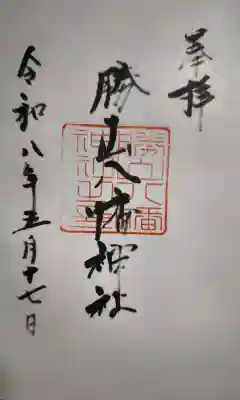 奉拝
勝山八幡神社
令和八年五月十七日